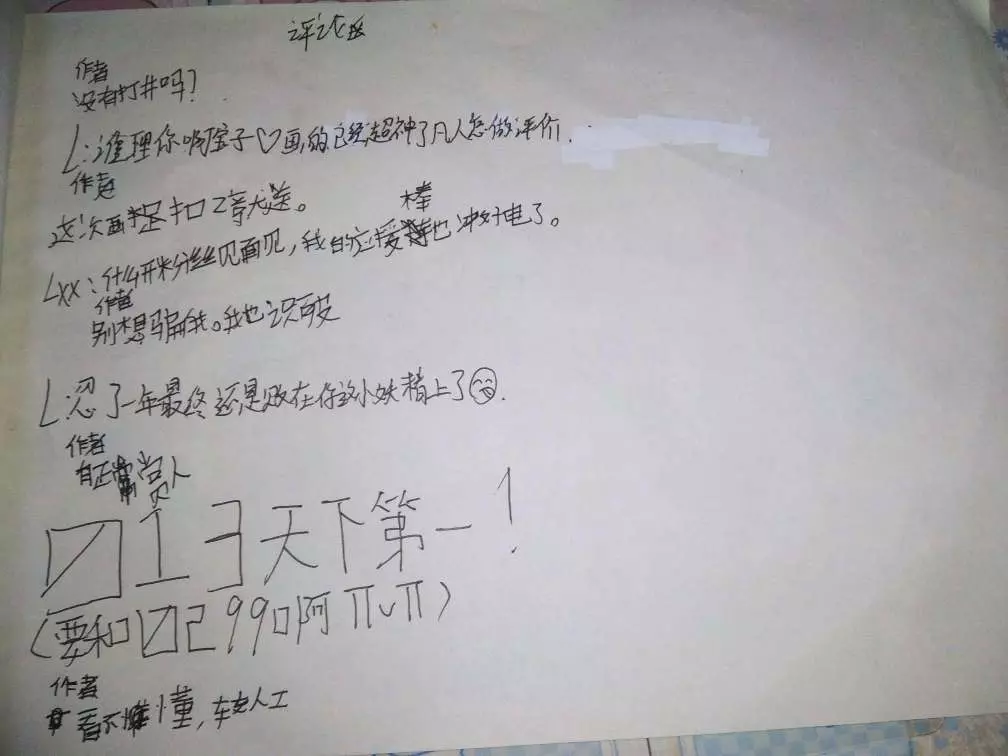 评论区
作者
没有打井吗？
L:谁理你啊宝子♡画的已经超神了凡人怎做评价.
作者
这次画 扣2等犬送。
Lxx:什么开粉丝见面见,我的应援棒也冲好电了。
作者
别想骗我。我也识字
L:忍了一年最终还是败在你这小妖精上了
作者
有正常人
013天下第一！
(要和02 99口阿 TT^TT)
作者
看不懂,转人工